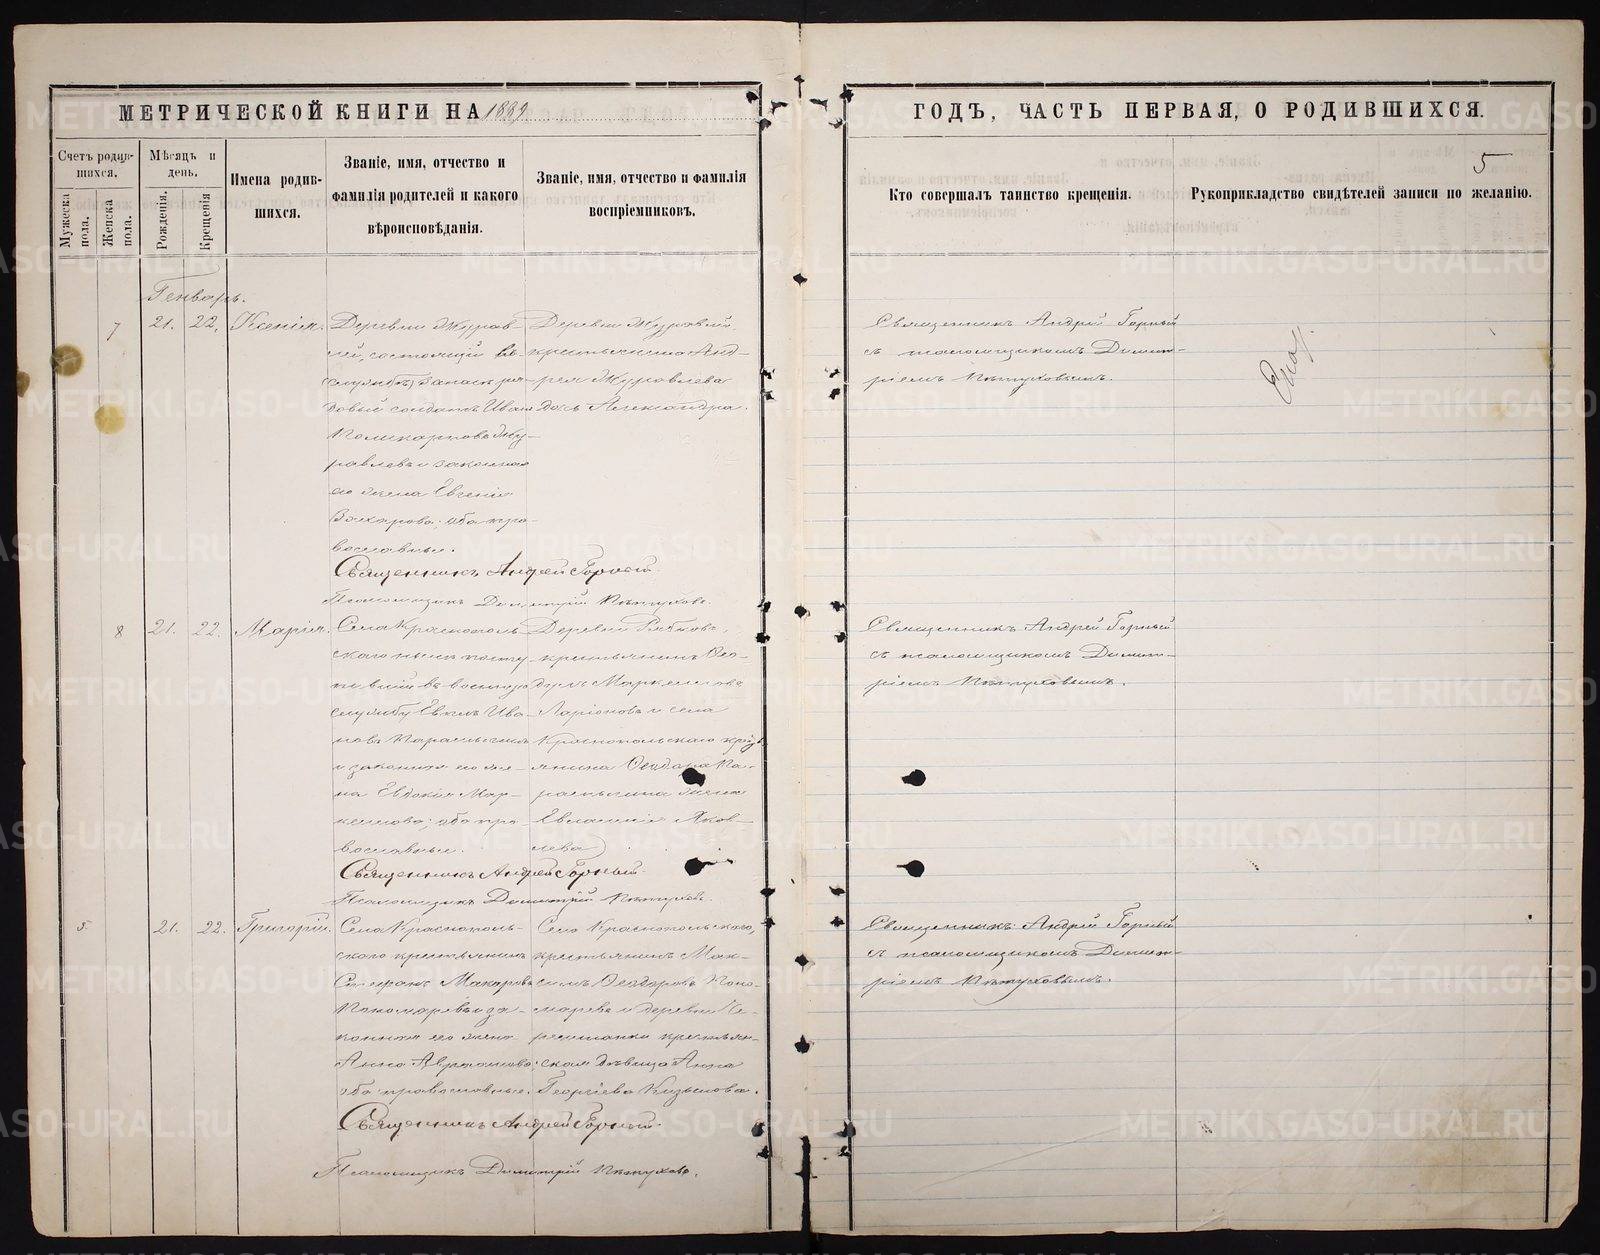 МЕТРИЧЕСКОЙ КНИГИ НА 1889
ГОДЪ, ЧАСТЬ ПЕРВАЯ, О РОДИВШИХСЯ.
5
Счетъ родив-
шихся.
Мужеска
пола.
Женска
пола.
Мѣсяцъ и
день.
Рожденія.
Крещенія
Имена родив-
шихся.
Званіе, имя, отчество и
фамилія родителей и какого
вѣроисповѣданія.
Званіе, имя, отчество и фамилія
воспріемниковъ.
Кто совершалъ таинство крещенія.
Рукоприкладство свидѣтелей записи по желанію.
Генварь.
7
21.
22.
Ксенія.
Деревни Журав-
лей, состоящій въ
запасѣ ря-
довый солдатъ Иванъ
Поликарповъ Жу-
равлевъ и законная
его жена Евгенія
обѣ пра-
вославные.
Священникъ Андрей Горный.
Псаломщикъ Димитрій Пѣтуховъ.
Деревни Журавлей
крестьянина Анд-
рея Журавлева
дочь Александра.
Священникъ Андрей Горный
съ псаломщикомъ Димит-
ріемъ Пѣтуховымъ.
8
21.
22.
Марія.
Села Краснополь-
скаго посту-
пившій въ военную
службу Евѳим Ива-
новъ Парасысинъ
и законная его же-
на Евдокія Мар-
келлова; оба пра-
вославные.
Священникъ Андрей Горный.
Псаломщикъ Димитрій Пѣтуховъ.
Деревни
крестьянинъ Ѳео-
доръ Маркелловъ
Ларіоновъ и села
Краснопольскаго кресть-
янина Ѳеодора Па-
жена
Евлампія Яков-
лева
Священникъ Андрей Горный
съ псаломщикомъ Димит-
ріемъ Пѣтуховымъ.
5
21.
22.
Григорій.
Села Краснополь-
скаго крестьянинъ
Стефанъ Макаровъ
Пономаревъ и за-
конная его жена
Анна
оба православные.
Священникъ Андрей Горный.
Псаломщикъ Димитрій Пѣтуховъ.
Села Краснопольскаго,
крестьянинъ Мак-
симъ Ѳеодоровъ Поно-
маревъ и деревни
крестьян-
ская дѣвица Анна
Георгіева
Священникъ Андрей Горный
съ псаломщикомъ Димит-
ріемъ Пѣтуховымъ.
METRIKI.GASO-URAL.RU